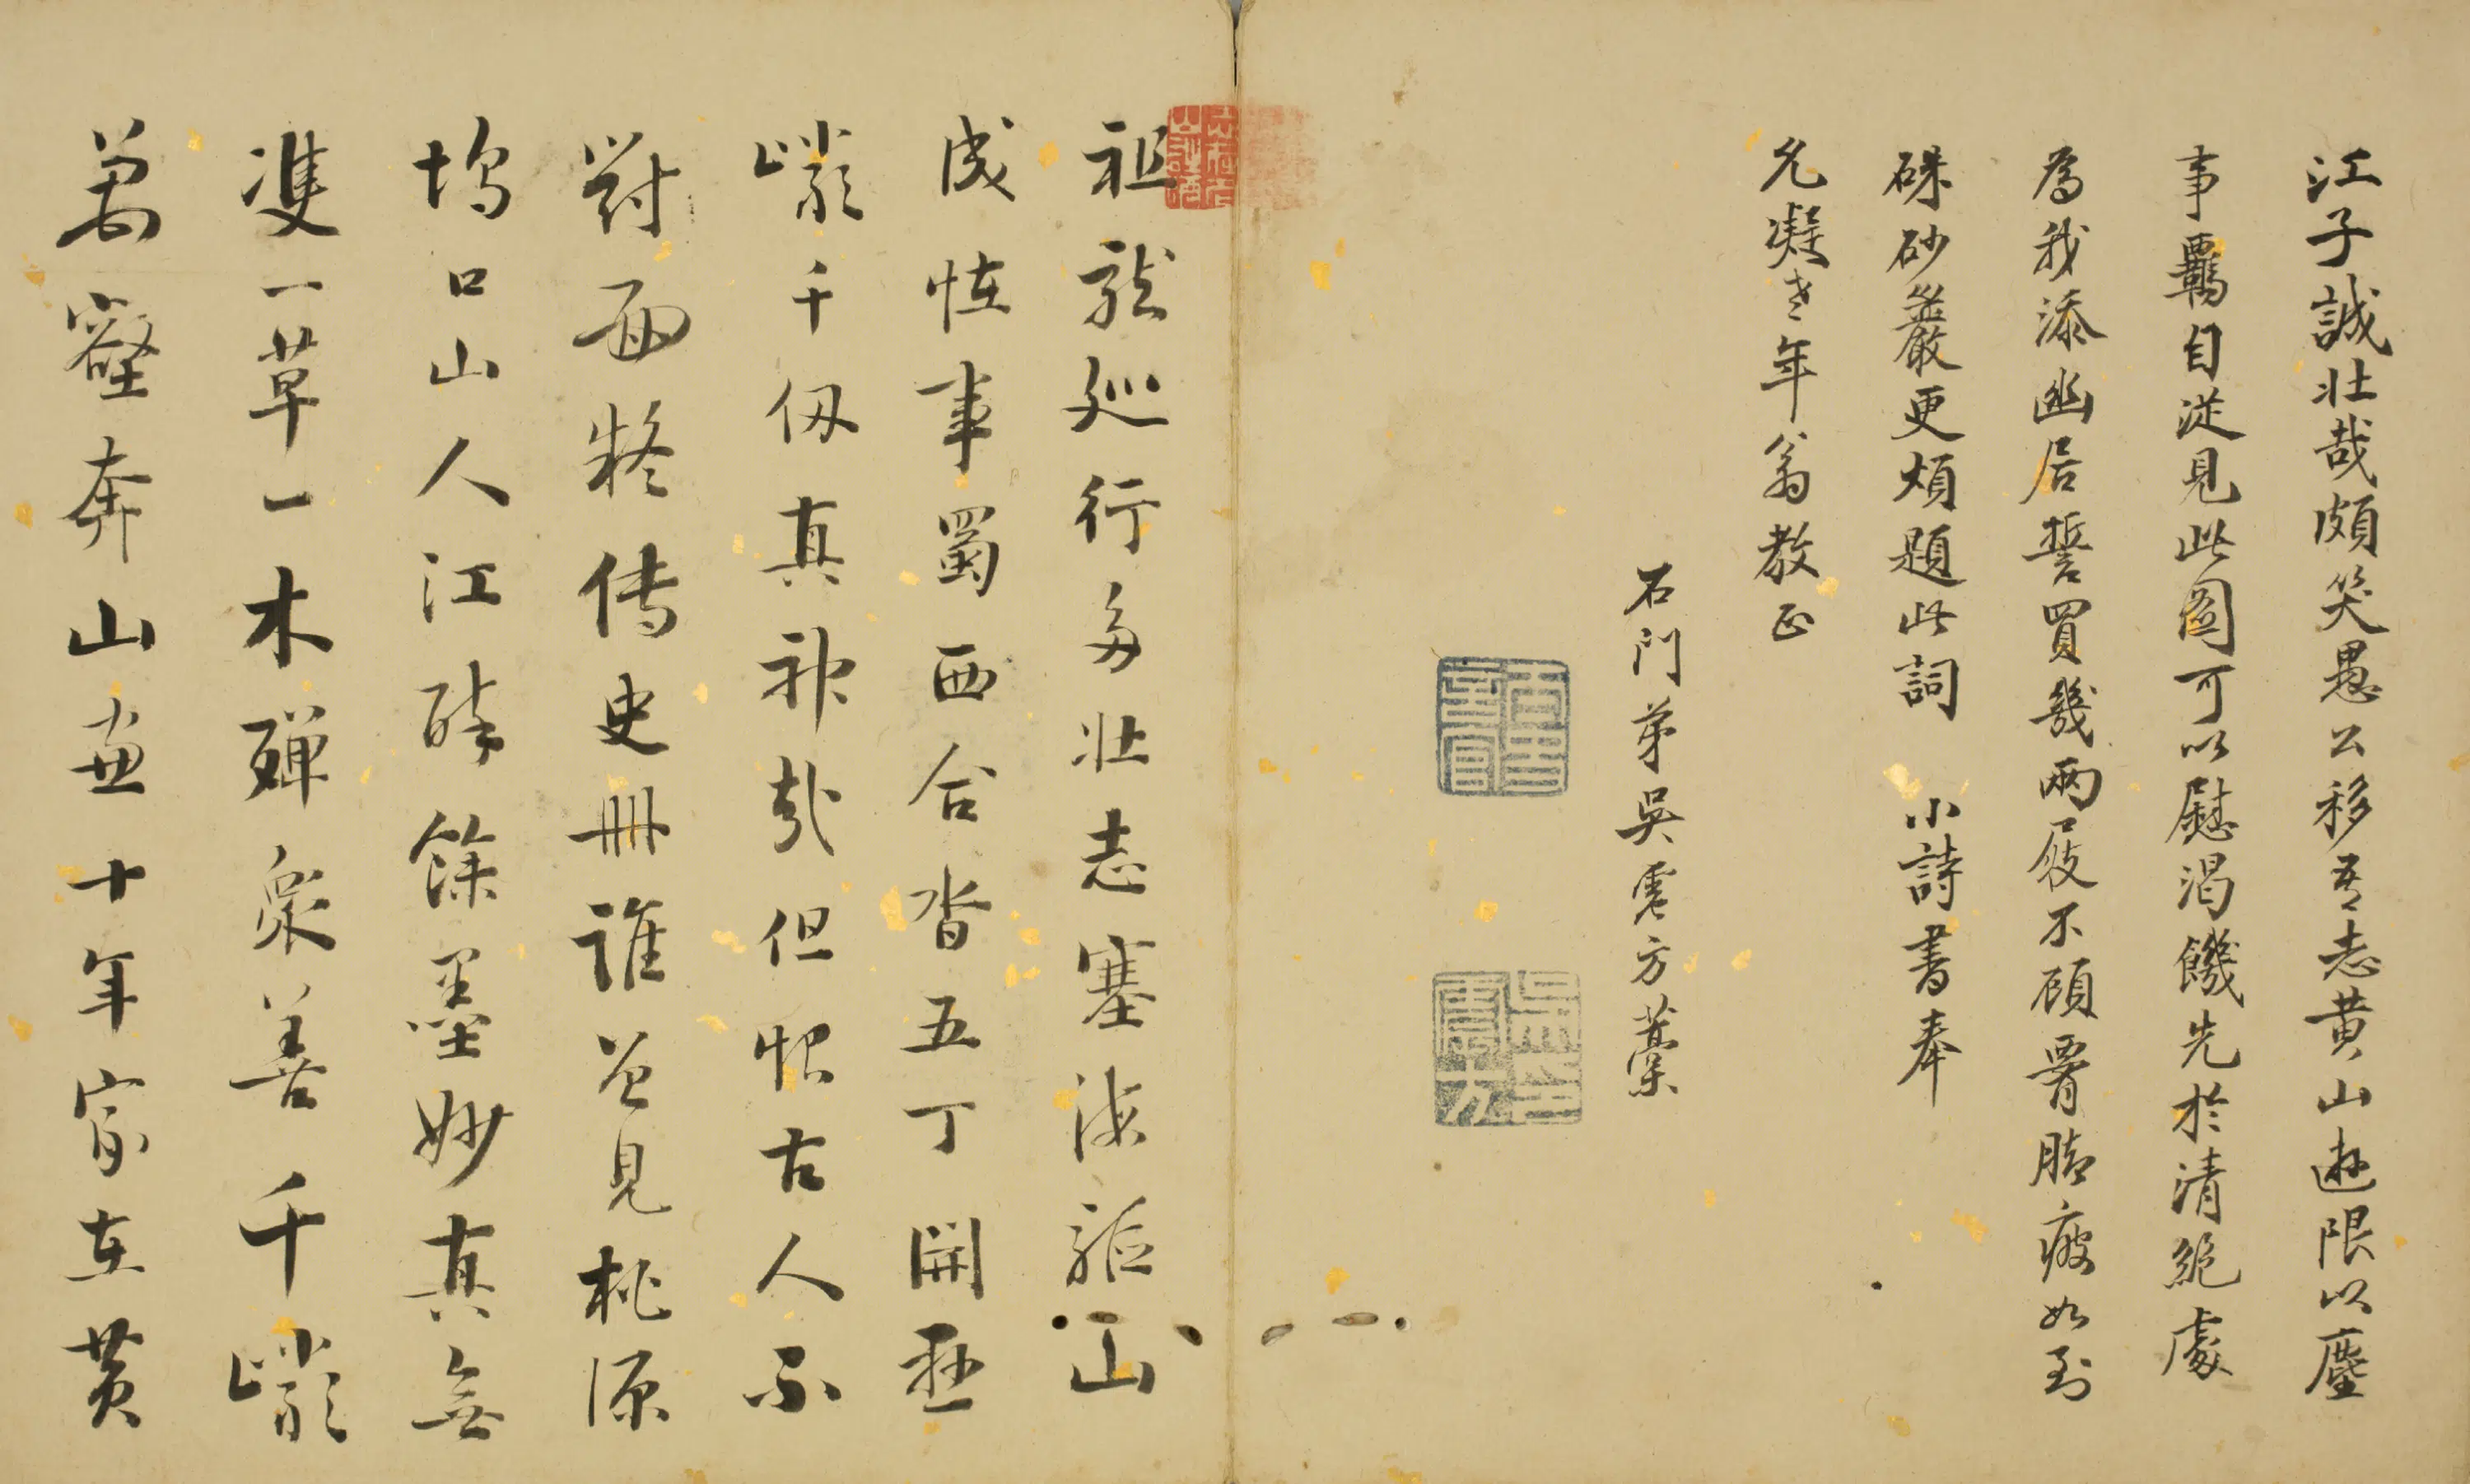 江子誠壯哉頗笑愚公移吾志黃山遊限以塵
事羈自從見此圖可以慰渴饑先於清絕處
為我添幽居誓買幾兩屐不顧腰脚疲如到
硃砂巖更煩題此詞 小詩書奉
允凝老年翁教正
石門弟吳震方藁
祖龍巡行多壯志塞海驅山
成怪事蜀西合沓五丁開巫
巘千仞真神哉但恨古人不
對面疑傳史冊誰曾見桃源
塢口山人江醉餘墨妙真無
雙一草一木殫眾善千巘
萬壑奔山十年家在黃